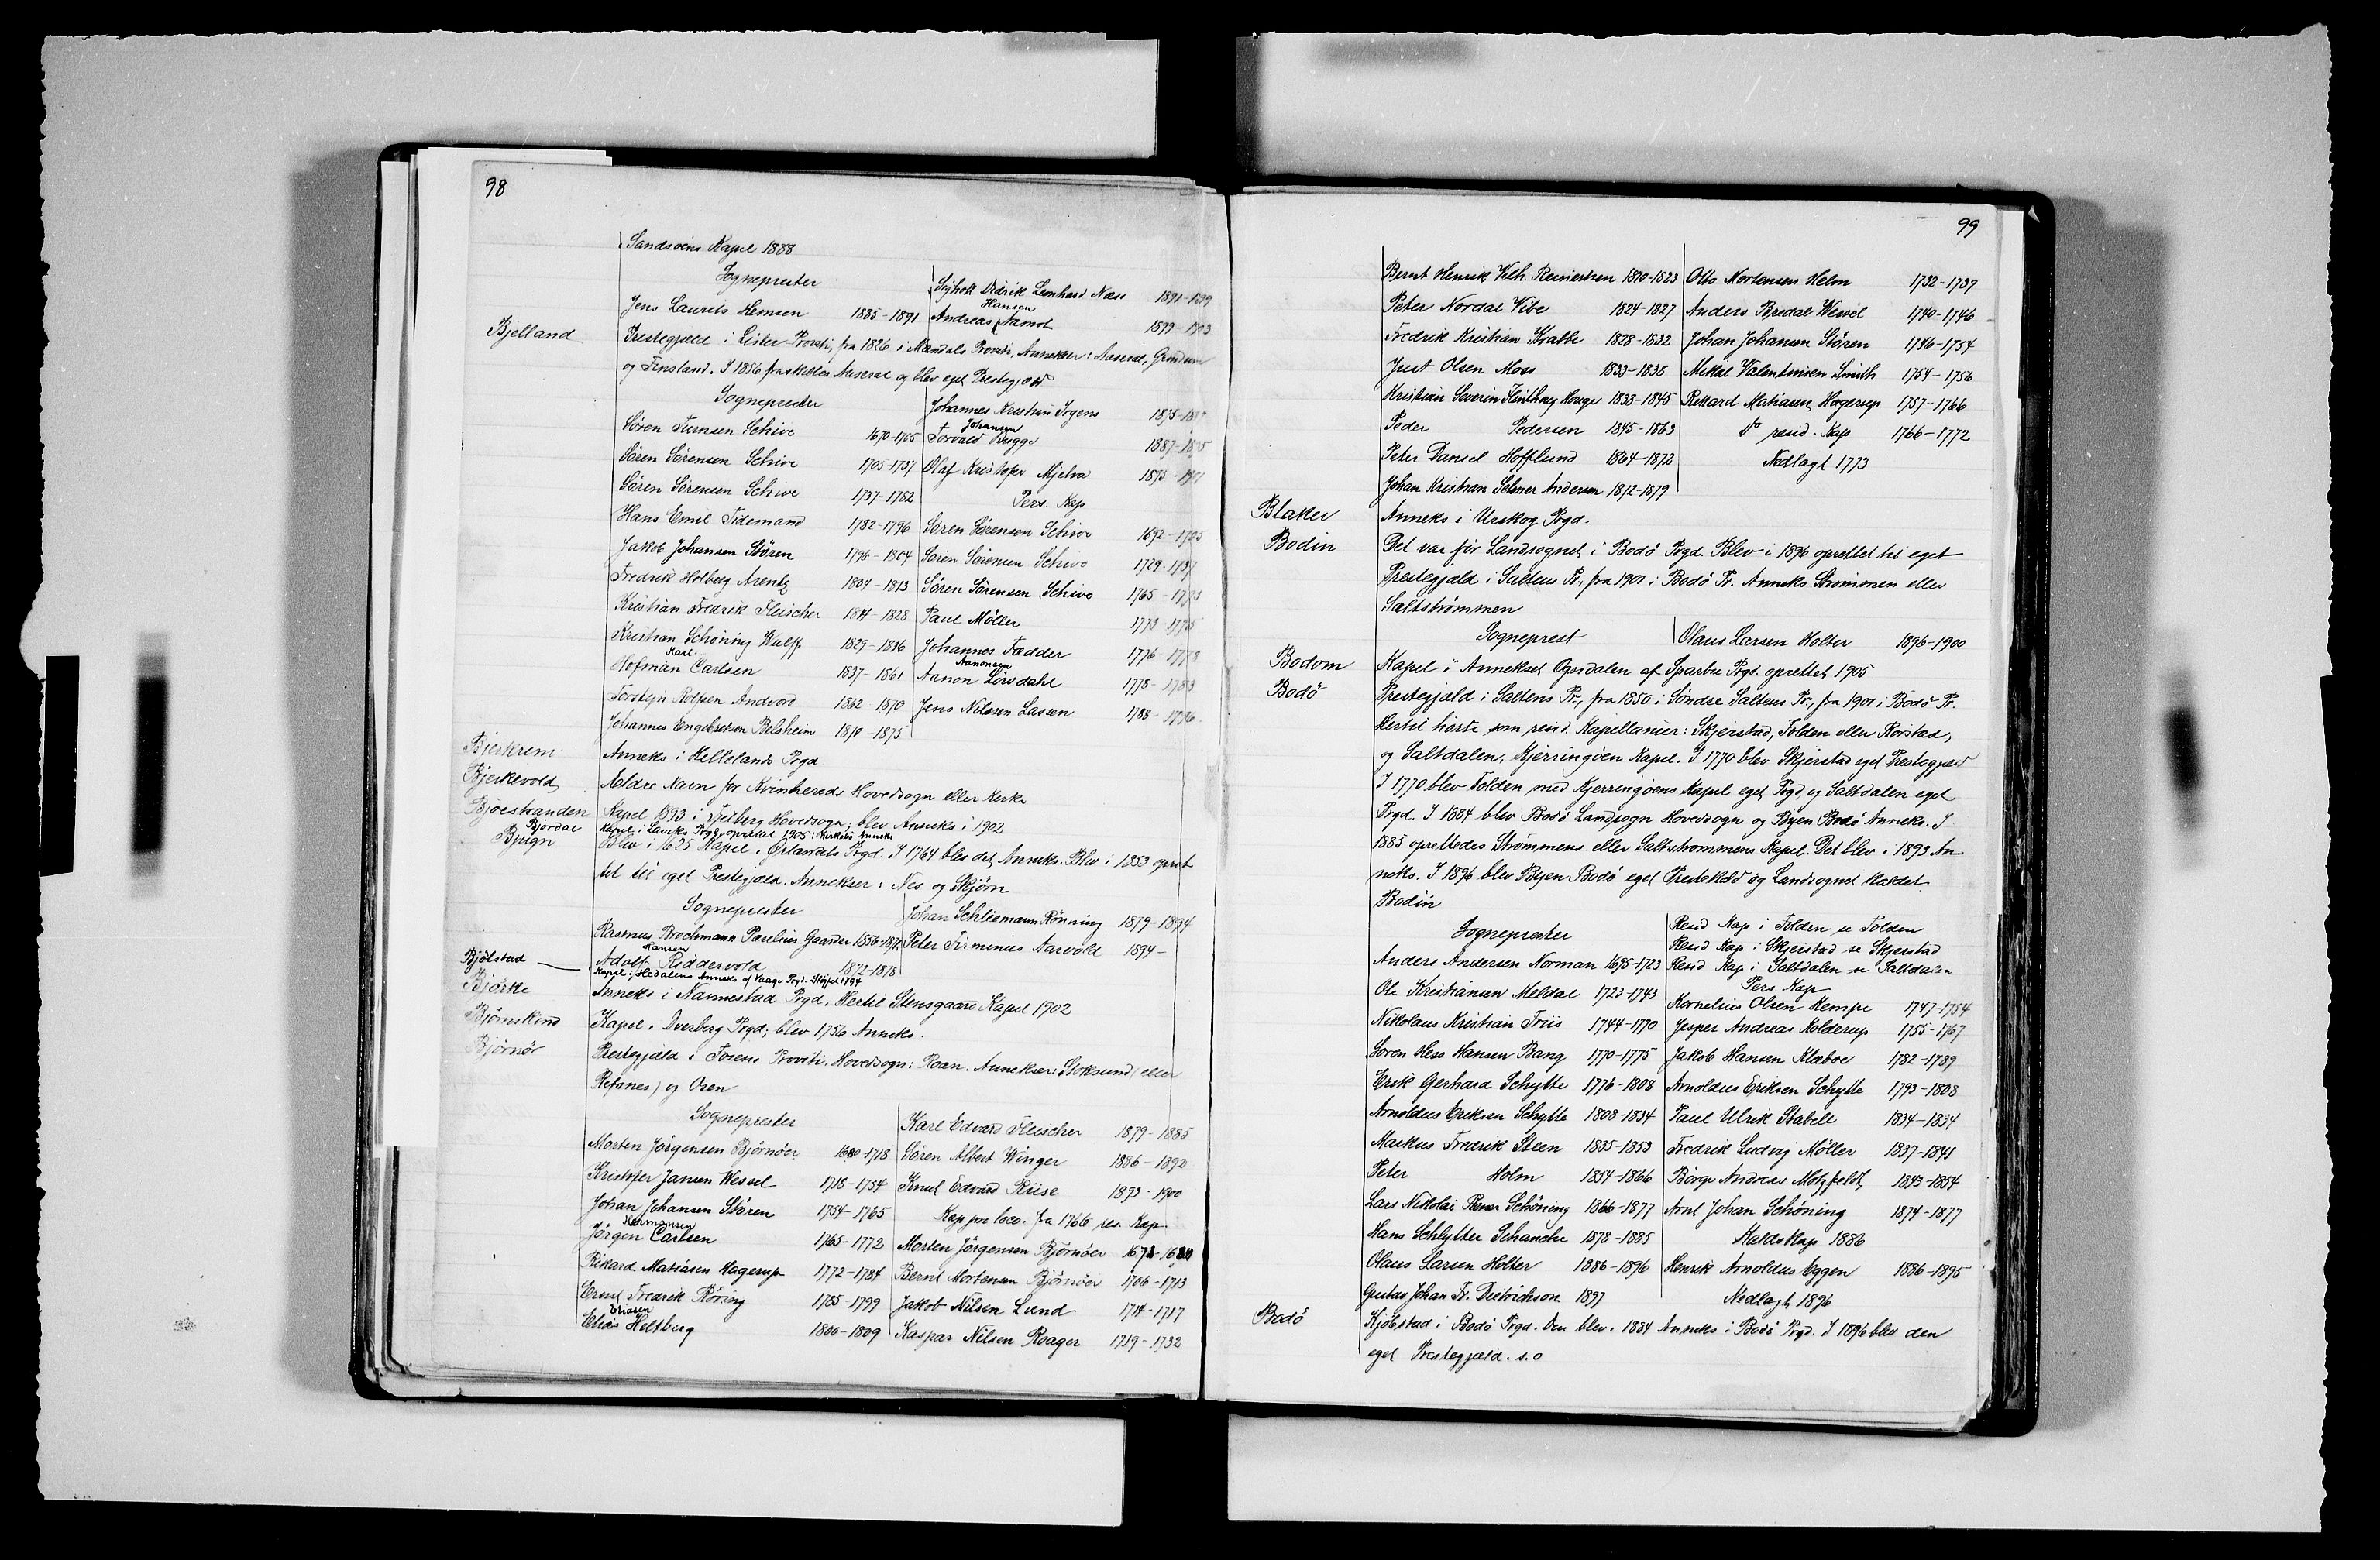 98
Sandsviens Kapel 1888
Sogneprester
Jens Laurits Hemsen 1885-1891
Didrik Leonhard Næss 1891-1899
Hansen
Andreas Aamot 1899-1903
Bjelland
Prestegjæld i Lister Provsti, fra 1826 i Mandals Provsti, Annekser: Aaseral, Grindum
og Finsland. I 1856 fraskildes Aaseral og blev eget Prestegjæld
Sogneprester
Sören Jensen Schive 1670-1705
Sören Sörensen Schive 1705-1737
Sören Sörensen Schive 1737-1782
Hans Emil Tidemand 1782-1796
Jakob Johansen Stören 1796-1804
Fredrik Holberg Arentz 1804-1813
Kristian Fredrik Fleischer 1814-1828
Kristian Schöning Wulff 1829-1836
Karl
Hofman Carlsen 1837-1861
Torstejn Rolfsen Andvord 1862-1870
Johannes Engebretsen Belsheim 1870-1875
Johannes Kristian Irgens 1875-
Johansen
Torvald Bugge 1887-1895
Olaf Kristofer Mjelva 1895-1901
Pers. Kap
Sören Sörensen Schive 1692-1705
Sören Sörensen Schive 1729-1737
Sören Sörensen Schive 1765-1773
Paul Möller 1773-1775
Johannes Fædder 1776-1778
Aanonsen
Aanon Lövdahl 1778-1783
Jens Nilssen Lassen 1788-1796
Bjerkrem
Annex i Hellelands Prgd
Bjerkevold
Ældre Navn for Kvinhereds Hovedsogn eller Kirke
Bjoestranden
Kapel 1893 i Fjelberg Hovedsogn; blev Anneks i 1902
Björdal
Kapel i Laviks Prgd, oprettet 1905: Kirkebö Anneks
Bjugn
Blev i 1625 Kapel i Ørlandets Prgd. I 1764 blev det Anneks. Blev i 1853 opret
tet til eget Prestegjæld. Annekser: Nes og Skjörn
Sogneprester
Rasmus Brochmann Parelius Gaarder 1856-1871
Hansen
Adolf Riddervold 1872-1878
Johan Schliemann Rönning 1879-1894
Peter Firminius Aarvold 1894-
Bjölstad
Kapel i Hedalens Anneks af Vaage Prgd. Slöjfet 1794
Björke
Anneks i Nannestad Prgd, Hertil Stensgaard Kapel 1902
Björnskind
Kapel i Dverberg Prgd; blev 1756 Anneks.
Björnör
Prestegjæld i Fosens Provsti, Hovedsogn: Roan. Annekser: Stoksund (eller
Refsnes) og Osen
Sogneprester
Morten Jörgensen Björnöer 1680-1718
Kristofer Jansen Wessel 1718-1754
Johan Johansen Stören 1754-1765
Hermansen
Jörgen Carlsen 1765-1772
Rikard Matiasen Hagerup 1772-1784
Ernst Fredrik Röring 1785-1799
Eliasen
Elias Heltberg 1800-1809
Karl Edvard Fleischer 1879-1885
Sören Albert Winger 1886-1892
Knud Edvard Riise 1893-1900
Kap pro loco. fra 1766 res. Kap
Morten Jörgensen Björnöer 1673-1680
Bernt Mortensen Björnöer 1706-1713
Jakob Nilsen Lund 1714-1717
Kaspar Nilsen Roager 1719-1732
99
Bernt Henrik Vilh. Reinertsen 1810-1823
Peter Nordal Vibe 1824-1827
Fredrik Kristian Krabbe 1828-1832
Just Olsen Moss 1833-1838
Kristian Severin Flinthug Hauge 1838-1845
Peder Pedersen 1845-1863
Peter Daniel Hofflund 1864-1872
Johan Kristian Selmer Andersen 1872-1879
Otto Mortensen Helm 1732-1739
Anders Bredal Wessel 1740-1746
Johan Johansen Stören 1746-1754
Mikal Valentinsen Smith 1754-1756
Rikard Matiasen Hagerup 1757-1766
do resid. Kap 1766-1772
Nedlagt 1773
Blaker
Anneks i Urskog Prgd.
Bodin
Det var för Landsognet i Bodö Prgd. Blev i 1896 oprettet til eget
Prestegjæld i Saltens Pr., fra 1901 i Bodö Pr. Anneks Strömmen eller
Saltströmmen
Sogneprest
Olaus Larsen Holter 1896-1900
Bodom
Kapel i Annekset Ogndalen af Sparbu Prgd. oprettet 1905
Bodö
Prestegjæld i Saltens Pr., fra 1850 i Söndre Saltens Pr., fra 1901 i Bodö Pr.
Hertil hörte som resid. Kapellanier: Skjerstad, Folden eller Rörstad,
og Saltdalen, Kjerringöen Kapel. I 1770 blev Skjerstad eget Prestegjæld
I 1770 blev Folden med Kjerringöens Kapel eget Prgd, og Saltdalen eget
Prgd. I 1884 blev Bodö Landsogn Hovedsogn og Byen Bodö Anneks. I
1885 oprettedes Strömmens eller Saltströmmens Kapel. Det blev i 1893 An
neks. I 1896 blev Byen Bodö eget Prestekald og Landsognet kaldet
Bodin
Sogneprester
Anders Andersen Norman 1675-1723
Ole Kristiansen Meldal 1723-1743
Nikolaus Kristian Friis 1744-1770
Sören Hess Hansen Bang 1770-1775
Erik Gerhard Schytte 1776-1808
Arnoldus Eriksen Schytte 1808-1834
Markus Fredrik Steen 1835-1853
Peter Holm 1854-1866
Lars Nikolai Rener Schöning 1866-1877
Hans Schlytter Schanche 1878-1885
Olaus Larsen Holter 1886-1896
Gustav Johan Fr. Dietrichson 1897
Resid Kap i Folden se Folden
Resid Kap i Skjerstad se Skjerstad
Resid Kap i Saltdalen se Saltdalen
Pers. Kap
Kornelius Olsen Kempe 1747-1754
Jesper Andreas Kolderup 1755-1767
Jakob Hansen Klæboe 1782-1789
Arnoldus Eriksen Schytte 1793-1808
Paul Ulrik Stabell 1834-1834
Fredrik Ludvig Möller 1837-1841
Börge Andreas Motzfeldt 1843-1854
Arnt Johan Schöning 1874-1877
Kaldskap 1886
Henrik Arnoldus Eggen 1886-1895
Nedlagt 1896
Bodö
Kjöbstad i Bodö Prgd. Den blev i 1884 Anneks i Bodö Prgd. I 1896 blev den
eget Prestegjæld. s.o